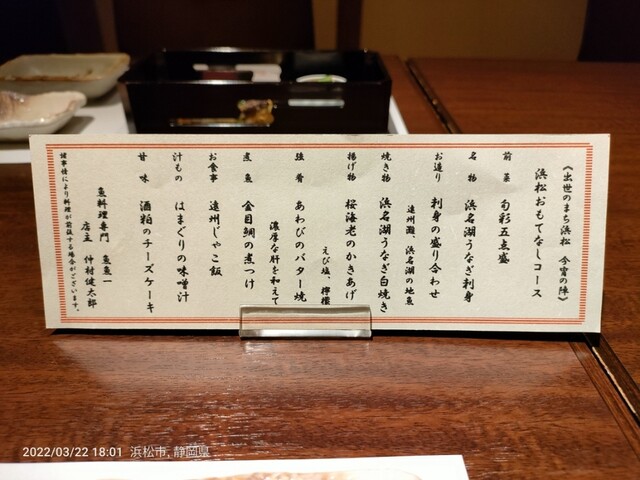 《出世のまち浜松 今宵の陣》
浜松おもてなしコース
前菜 旬彩五点盛
名物 浜名湖うなぎ刺身
お造り 刺身の盛り合わせ
遠州灘、浜名湖の地魚
焼き物 浜名湖うなぎ白焼き
揚げ物 桜海老のかきあげ
えび塩、檸檬
強肴 あわびのバター焼
濃厚な肝を和えて
煮魚 金目鯛の煮つけ
お食事 遠州じゃこ飯
汁もの はまぐりの味噌汁
甘味 酒粕のチーズケーキ
魚料理専門 魚魚一
店主 仲村健太郎
諸事情により料理が前後する場合がございます。
2022/03/22 18:01 浜松市, 静岡県